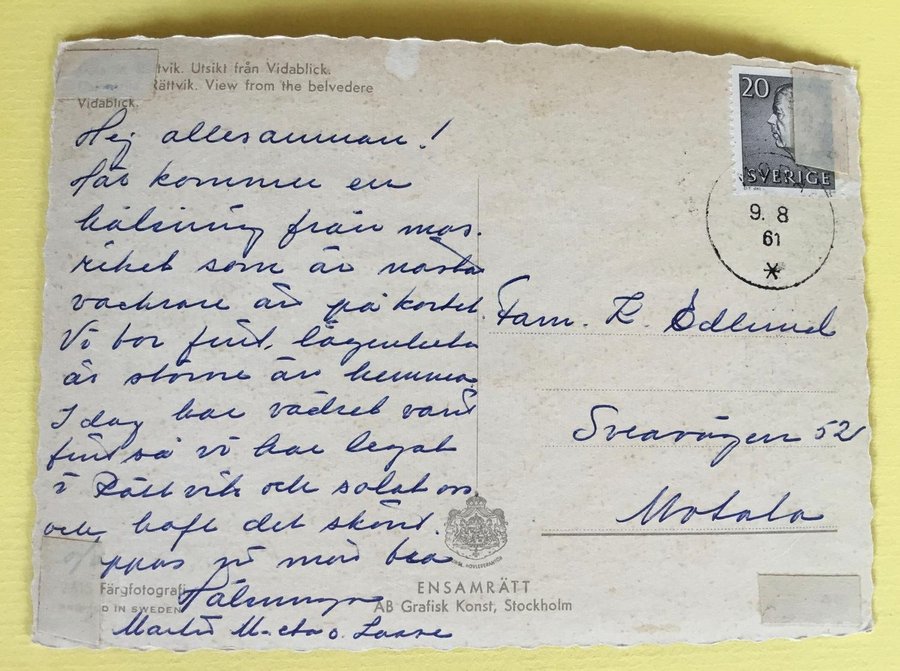 tvik. Utsikt från Vidablick.
Rättvik. View from the belvedere
Vidablick.
Hej allesamman!
Här kommer en
hälsning från mas-
riket som är nästa
vackrare än på kortet.
Vi bor fint, lägenheten
är större än hemma.
I dag har vädret varit
fint så vi har legat
i Rättvik och solat oss
och haft det skönt.
ppas ni mår bra
Hälsningar
Märta o. Lasse
Färgfotografi
D IN SWEDEN
20
SVERIGE
9. 8
61
Fam. Edlund
Sveavägen 52
Motala
ENSAMRÄTT
AB Grafisk Konst, Stockholm